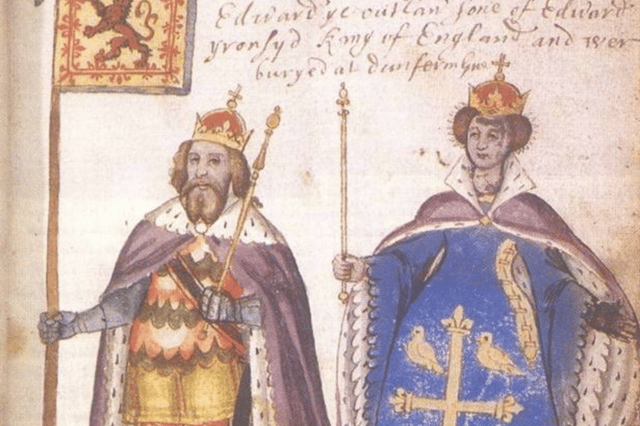 Edward ye outlaw sone of Edward
yronsyd King of England and wer
buryed at dunfermline